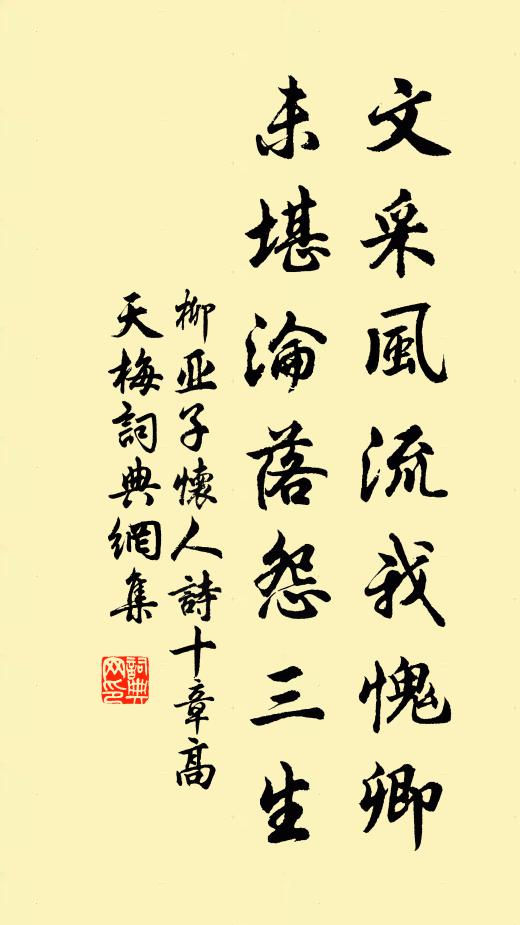 文采風流我愧卿
未堪淪落怨三生
柳亚子懷人詩十章高
天梅詞典網集
詞典網印